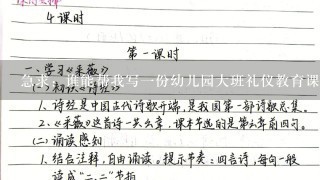 4课时
第一课时
一、学习《采薇》
急求！谁能帮我写一份幼儿园大班礼仪教育课
(一)初识《诗经》
1、诗经是中国古代诗歌开端，是我国第一部诗歌总集。
2、《采薇》这首诗一共六章，课本节选的是第六章前四句。
(二)诵读感知
1、结合注释，自由诵读。提示节奏：四言诗，每句一般
读成“二、二”节拍